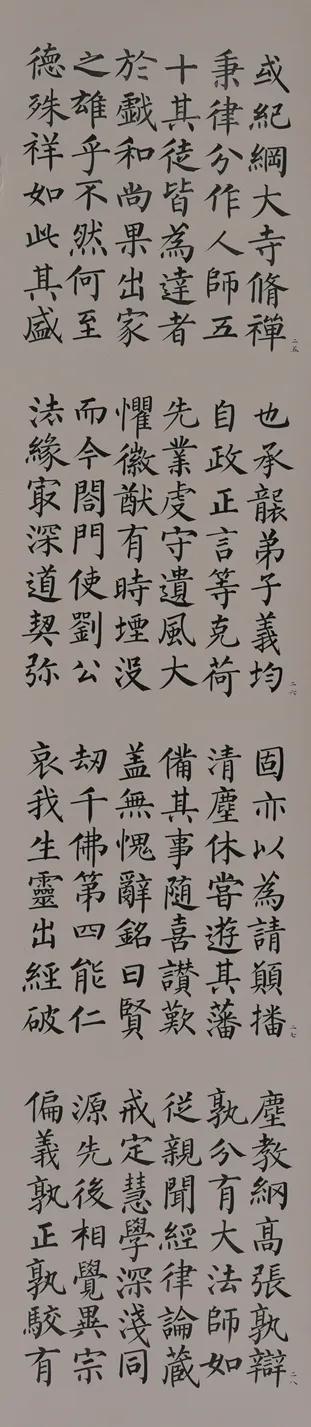 或紀綱大寺脩禪
秉律分作人師五
十其徒皆為達者
於戲和尚果出家
之雄乎不然何至
德殊祥如此其盛
二五
也承襲弟子義均
自政正言等克荷
先業虔守遺風大
懼徽猷有時堙没
而今閤門使劉公
法緣冣深道契弥
二六
固亦以為請願播
清塵休甞遊其藩
備其事隨喜讃歎
盖無愧辭銘曰賢
劫千佛第四能仁
哀我生靈出經破
二七
塵教網高張孰辯
孰分有大法師如
從親聞經律論藏
戒定慧學深淺同
源先後相覺異宗
偏義孰正孰駮有
二八